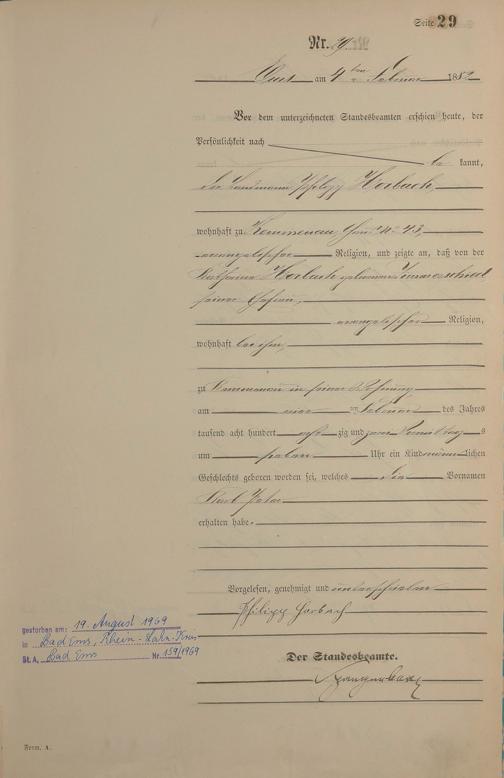 Seite 29
Nr. 29
Ems am 4ten Februar 1882
Vor dem unterzeichneten Standesbeamten erschien heute, der
Persönlichkeit nach
be kannt,
der Landmann Philipp Horbach,
wohnhaft zu Kemmenau Haus No 43,
evangelischer Religion, und zeigte an, daß von der
Horbach geborenen
seiner Ehefrau,
evangelischer Religion,
wohnhaft bei ihm,
zu Kemmenau in seiner Wohnung
am vier ten Februar des Jahres
tausend acht hundert acht zig und zwei Vormittags
um sieben Uhr ein Kind männlichen
Geschlechts geboren worden sei, welches die Vornamen
Karl Peter
erhalten habe.
Vorgelesen, genehmigt und unterschrieben
Philipp Horbach
Der Standesbeamte.
gestorben am: 19. August 1969
in Bad Ems, Rhein-Lahn-Kreis
St. A. Bad Ems Nr 159/1969
Form. A.